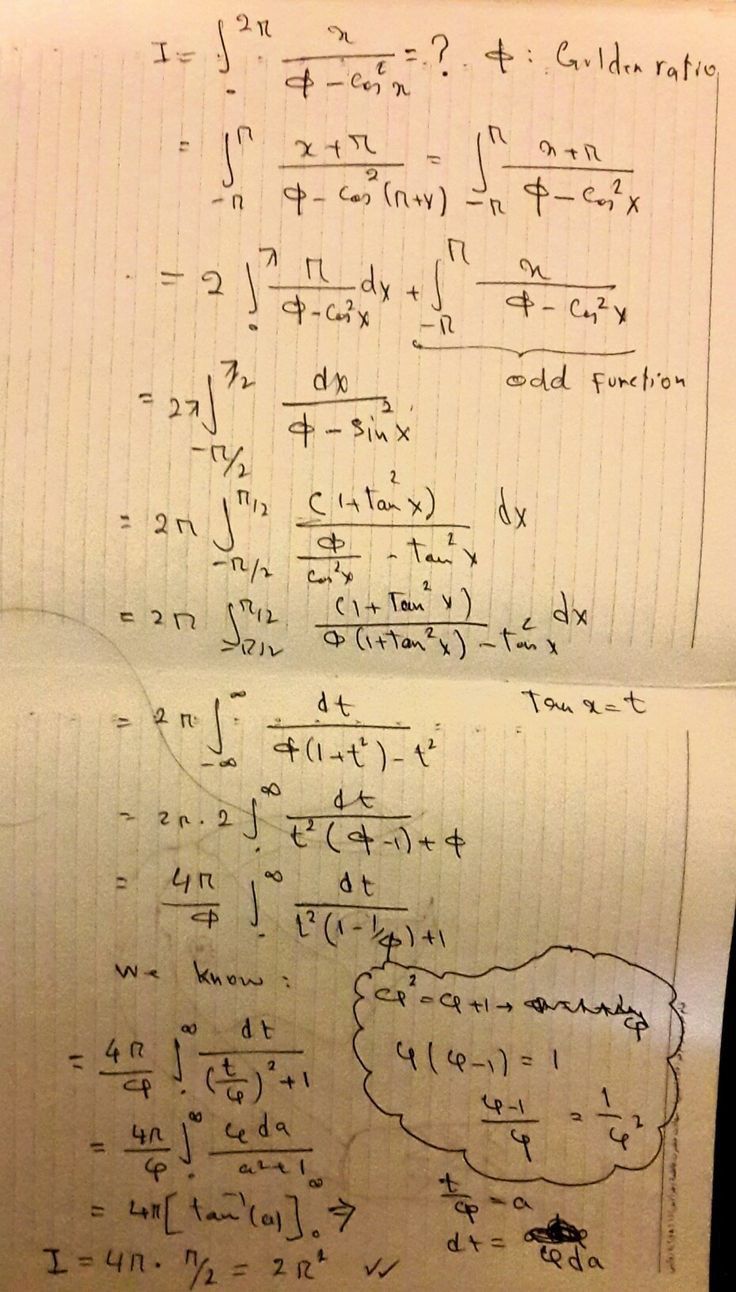 I = ∫₀^{2π} x / (ϕ - cos²x) = ? ϕ : Golden ratio
= ∫_{-π}^{π} (x+π) / (ϕ - cos²(π+x)) = ∫_{-π}^{π} (x+π) / (ϕ - cos²x)
= 2 ∫₀^{π} π / (ϕ - cos²x) dx + ∫_{-π}^{π} x / (ϕ - cos²x)
odd function
= 2π ∫_{-π/2}^{π/2} dx / (ϕ - sin²x)
= 2π ∫_{-π/2}^{π/2} (1+tan²x) / (ϕ/cos²x - tan²x) dx
= 2π ∫_{-π/2}^{π/2} (1+Tan²x) / (ϕ(1+tan²x) - tan²x) dx
Tan x = t
= 2π ∫_{-∞}^{∞} dt / (ϕ(1+t²) - t²)
= 2π·2 ∫₀^{∞} dt / (t²(ϕ-1) + ϕ)
= 4π/ϕ ∫₀^{∞} dt / (t²(1 - 1/ϕ) + 1)
We know :
φ² = φ+1 →
φ(φ-1) = 1
(φ-1)/φ = 1/φ²
= 4π/φ ∫₀^{∞} dt / ((t/φ)² + 1)
= 4π/φ ∫₀^{∞} φ da / (a² + 1)
t/φ = a
dt = φ da
= 4π [tan⁻¹(a)]₀^{∞} ⇒
I = 4π · π/2 = 2π² ✓✓